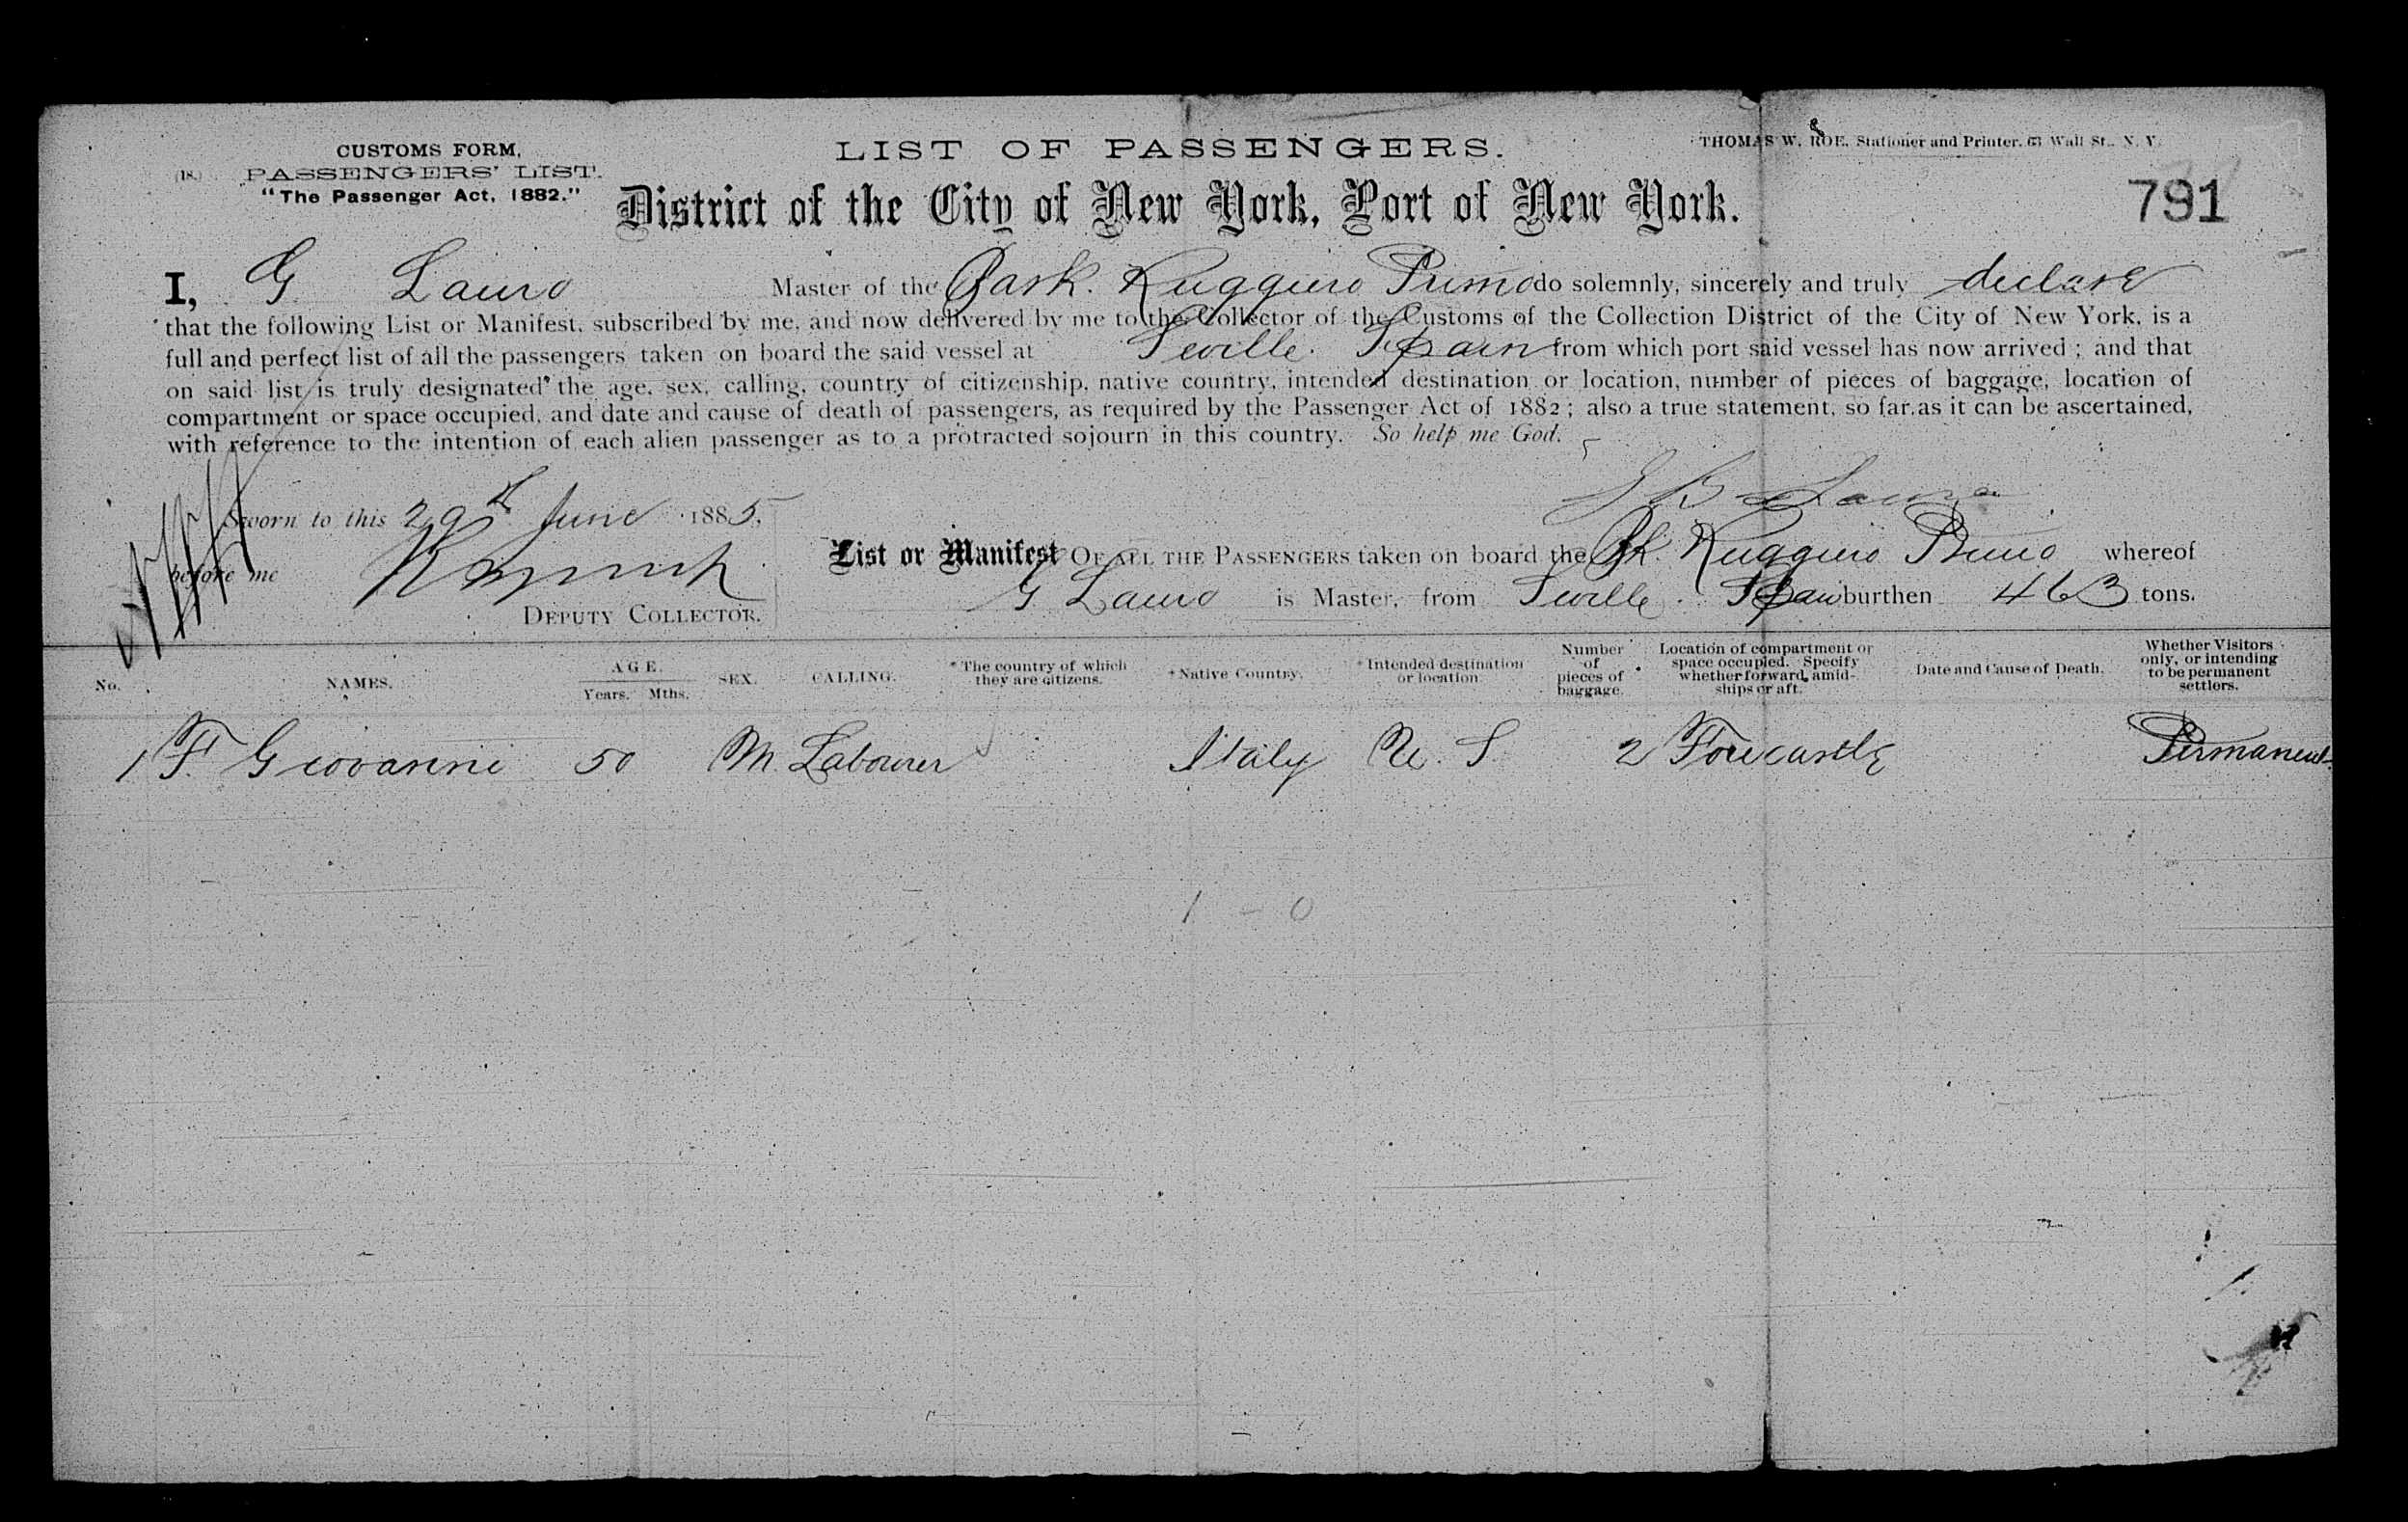 CUSTOMS FORM,
(18.) PASSENGERS' LIST.
"The Passenger Act, 1882."
LIST OF PASSENGERS.
THOMAS W. ROE, Stationer and Printer, 63 Wall St., N. Y.
District of the City of New York, Port of New York.
791
I, G Lauro Master of the Bark. Ruggiero Primo do solemnly, sincerely and truly declare
that the following List or Manifest, subscribed by me, and now delivered by me to the Collector of the Customs of the Collection District of the City of New York, is a
full and perfect list of all the passengers taken on board the said vessel at Seville. Spain from which port said vessel has now arrived; and that
on said list is truly designated the age, sex, calling, country of citizenship, native country, intended destination or location, number of pieces of baggage, location of
compartment or space occupied, and date and cause of death of passengers, as required by the Passenger Act of 1882; also a true statement, so far as it can be ascertained,
with reference to the intention of each alien passenger as to a protracted sojourn in this country. So help me God.
G B Lauro
Sworn to this 29th June 1885,
before me
DEPUTY COLLECTOR.
List or Manifest OF ALL THE PASSENGERS taken on board the Bk. Ruggiero Primo whereof
G Lauro is Master, from Seville. Spain burthen 463 tons.
No. NAMES. AGE. Years. Mths. SEX. CALLING. *The country of which they are citizens. *Native Country. *Intended destination or location. Number of pieces of baggage. Location of compartment or space occupied. Specify whether forward, amid-ships or aft. Date and Cause of Death. Whether Visitors only, or intending to be permanent settlers.
1 F. Giovannni 50 M. Labourer Italy U. S. 2 Forecastle Permanent
1 - 0